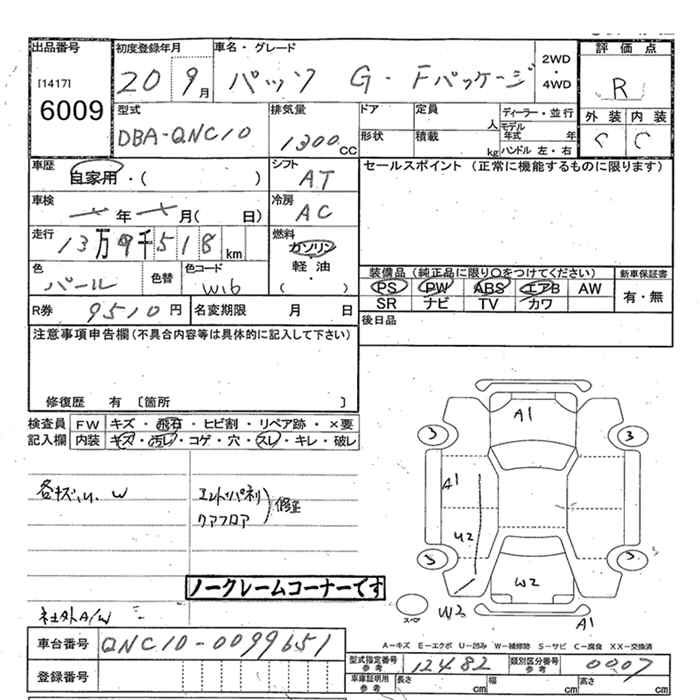 出品番号
[1417]
6009
初度登録年月
20 9月
車名・グレード
パッソ G・Fパッケージ
2WD
・
4WD
評価点
R
外装 内装
C C
型式
DBA-QNC10
排気量
1300cc
ドア
形状
定員 人
積載 kg
ディーラー・並行
モデル年式 年
ハンドル 左・右
車歴
自家用・( )
シフト
AT
車検
年 月( 日)
冷房
AC
走行
13万9千518km
燃料
ガソリン
軽油
・( )
色
パール
色替
色コード
W16
セールスポイント(正常に機能するものに限ります)
装備品(純正品に限り○をつけてください)
PS PW ABS エアB AW
SR ナビ TV カワ
新車保証書
有・無
R券 9510円
名変期限 月 日
後日品
注意事項申告欄(不具合内容等は具体的に記入して下さい)
修復歴 有 〔箇所 〕
検査員記入欄
FW キズ・飛石・ヒビ割・リペア跡・×要
内装 キズ・汚レ・コゲ・穴・スレ・キレ・破レ
各キズ、U、W
エンドパネル
リアフロア
修正
社外A/W
ノークレームコーナーです
A1
3 3
A1 A1
U2
3 3
W2
W3
スペア
A1
A-キズ E-エクボ U-凹み W-補修跡 S-サビ C-腐食 XX-交換済
車台番号 QNC10-0099651
登録番号
型式指定番号参考 12482
類別区分番号参考 0007
車庫証明用参考 長さ cm 幅 cm 高さ cm